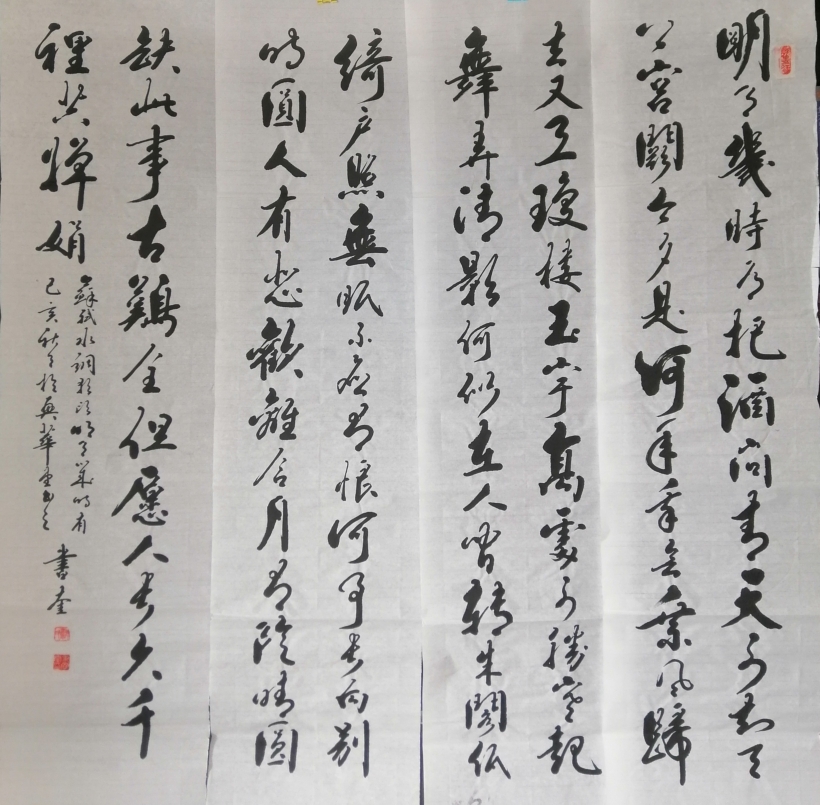 明月幾時有把酒问青天不知天
上宮闕今夕是何年我欲乘风歸
去又恐瓊楼玉宇高處不勝寒起
舞弄清影何似在人间轉朱閣低
綺户照無眠不应有恨何事长向别
时圓人有悲歡離合月有陰晴圓
缺此事古難全但愿人长久千
裡共嬋娟
蘇轼水调歌头明月幾时有
己亥秋月於
書奎